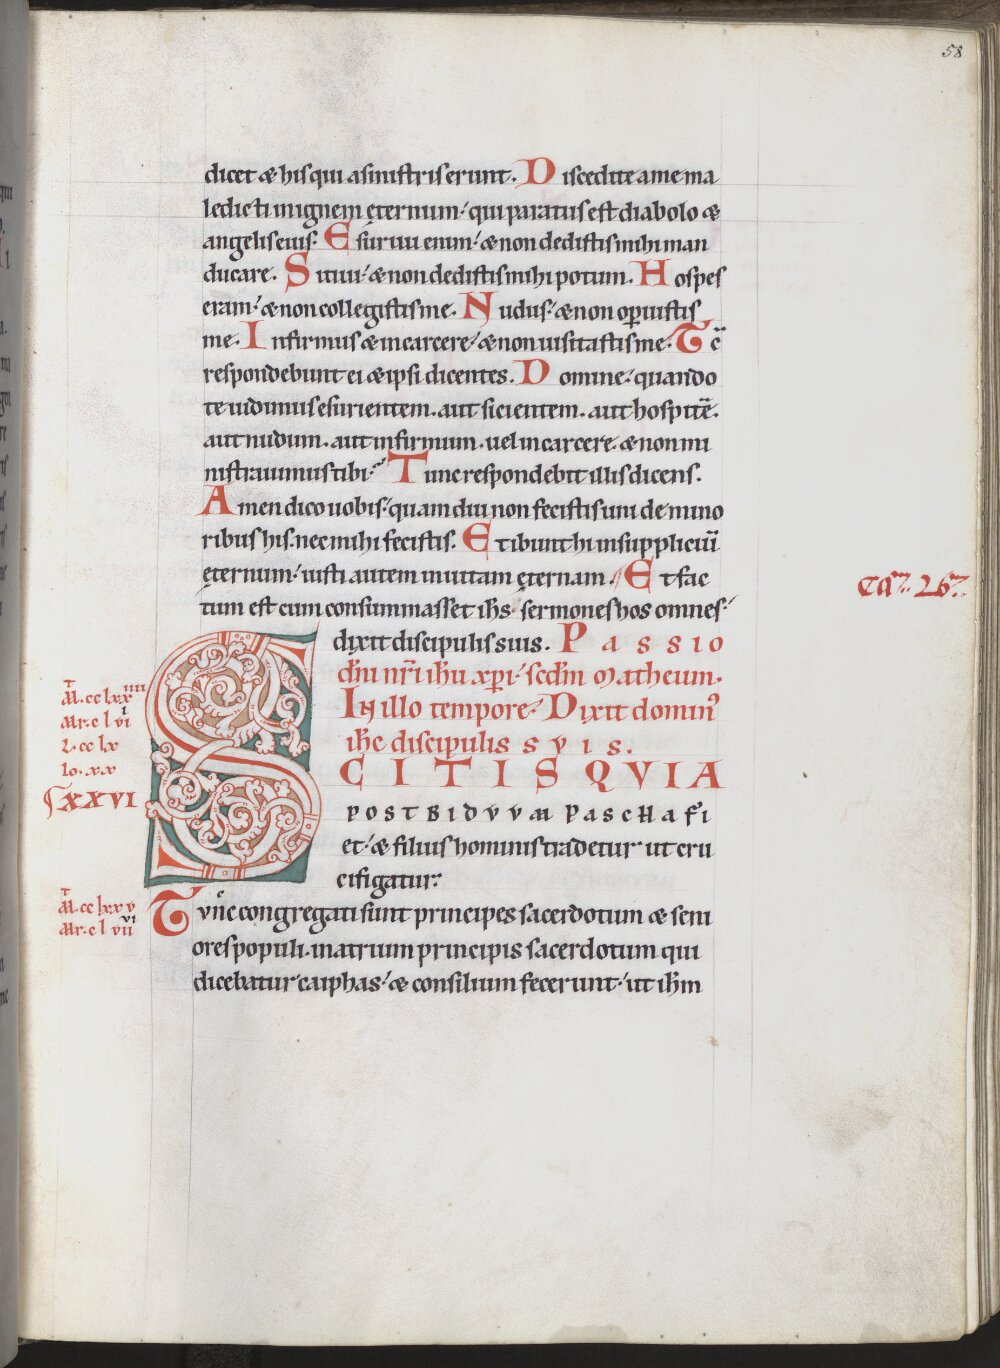 58
dicet & his qui a sinistris erunt. Discedite a me ma
ledicti in ignem ęternum· qui paratus est diabolo &
angelis eius. Esuriui enim· & non dedistis mihi man
ducare. Sitiui· & non dedistis mihi potum. Hospes
eram· & non collegistis me. Nudus· & non opꝑuistis
me. Infirmus & in carcere· & non uisitastis me. Tc̄
respondebunt ei & ipsi dicentes. Domine· quando
te uidimus esurientem. aut sicientem. aut hospitē.
aut nudum. aut infirmum. uel in carcere· & non mi
nistrauimus tibi· Tunc respondebit illis dicens.
Amen dico uobis· quam diu non fecistis uni de mino
ribus his· nec mihi fecistis. Et ibunt hi in suppliciū
ęternum· iusti autem in uitam ęternam. Et fac
tum est cum consummasset ih̄s sermones hos omnes·
Ca. 26.
dixit discipulis suis. Passio
dn̄i nr̄i ih̄u xp̄i· scd̄m Matheum.
In illo tempore· Dixit domin᾽
ih̄c discipulis suis.
SCITIS QVIA
POST BIDVVM PASCHA FI
et· & filius hominis tradetur ut cru
cifigatur·
T
M. cc lxxiiii
Mr. c l vi
L. cc lx
Io. xx
XXVI
T
M. cc lxxv
Mr. c l vii
Tunc congregati sunt principes sacerdotum & seni
ores populi. in atrium principis sacerdotum qui
dicebatur caiphas· & consilium fecerunt· ut ih̄m